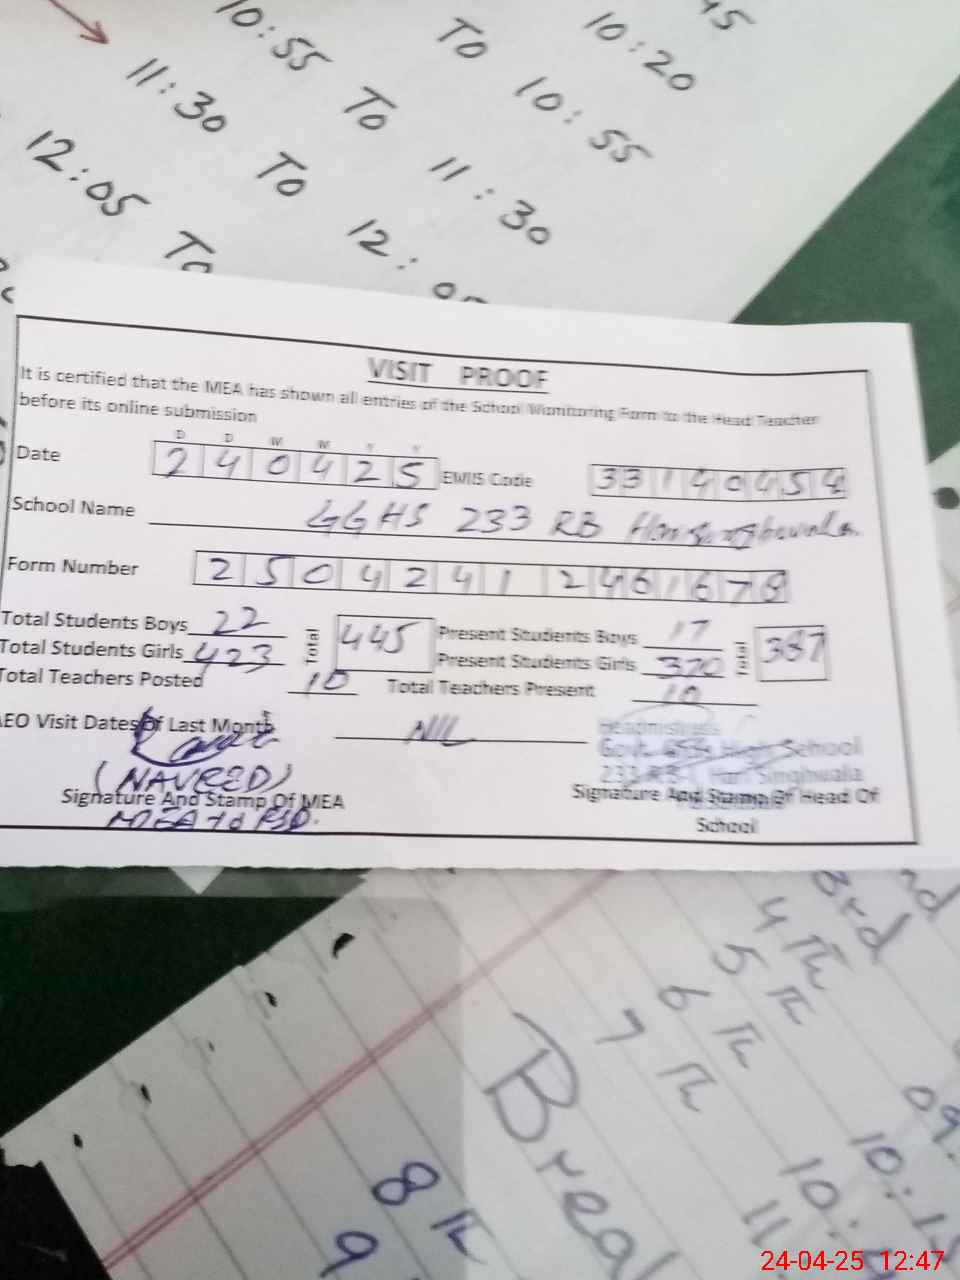 45
10:20
To 10:55
10:55 To 11:30
11:30 To 12:
12:05 To
VISIT PROOF
It is certified that the MEA has shown all entries of the School Monitoring Form to the Head Teacher
before its online submission
D D M M Y Y
Date 240425 EMIS Code 33140454
School Name GGHS 233 RB
Form Number 2504241 2461678
Total Students Boys 22 Total 445 Present Students Boys 17 Total 387
Total Students Girls 423 Present Students Girls 370
Total Teachers Posted 10 Total Teachers Present 10
AEO Visit Dates Of Last Month NIL
Headmistress
Govt. Girls High School
233 RB Hari Singhwala
(NAVEED)
Signature And Stamp Of MEA
Signature And Stamp Of Head Of
School
3rd
4Th
5Th
6Th
7Th
Brea
8Th
9
09.
10:
10:
11
24-04-25 12:47